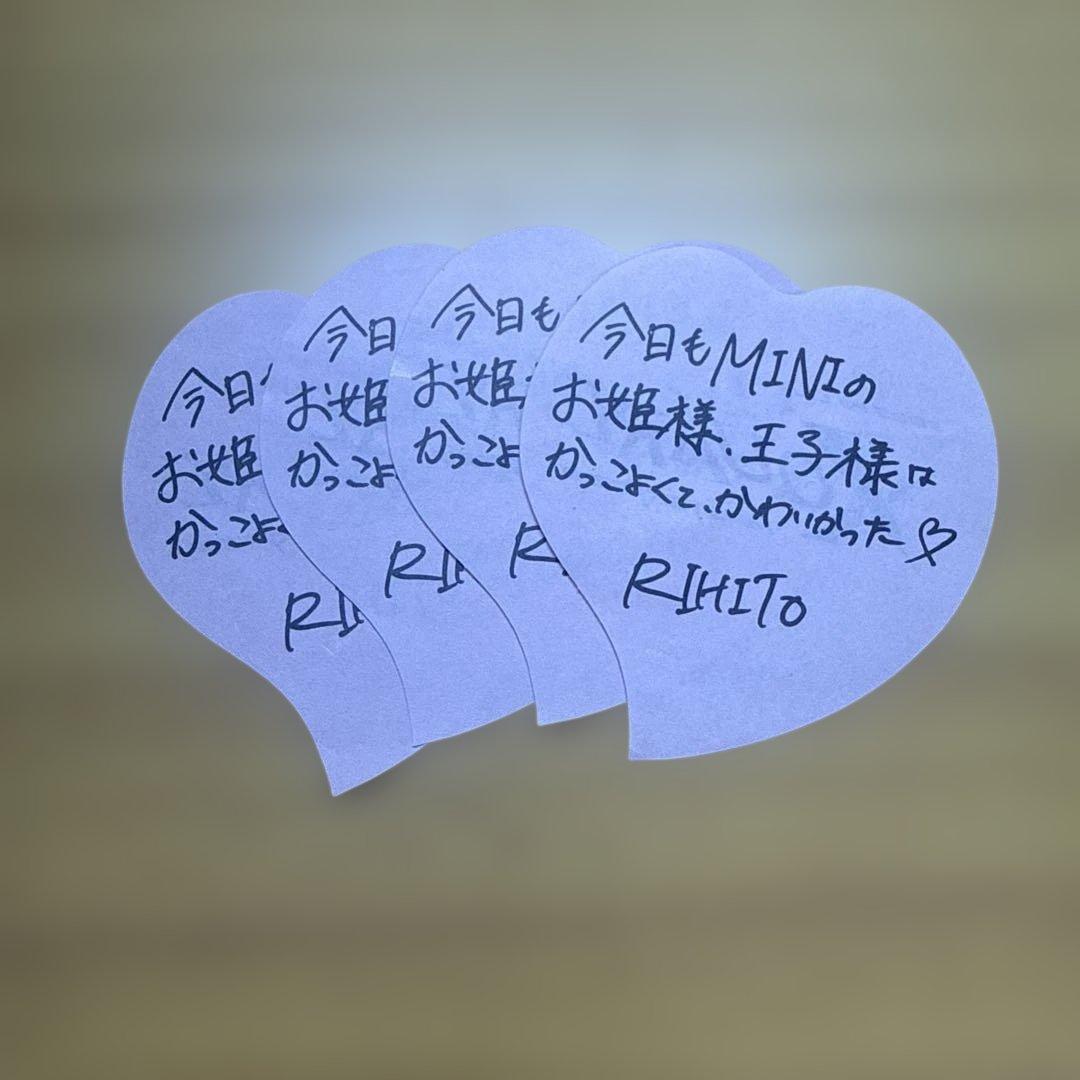 今日
お姫
かっこよ
RI
今日
お姫
かっこよ
RI
今日も
お姫
かっこよ
R
今日もMINIの
お姫様、王子様は
かっこよくて、かわいかった♡
RIHITO